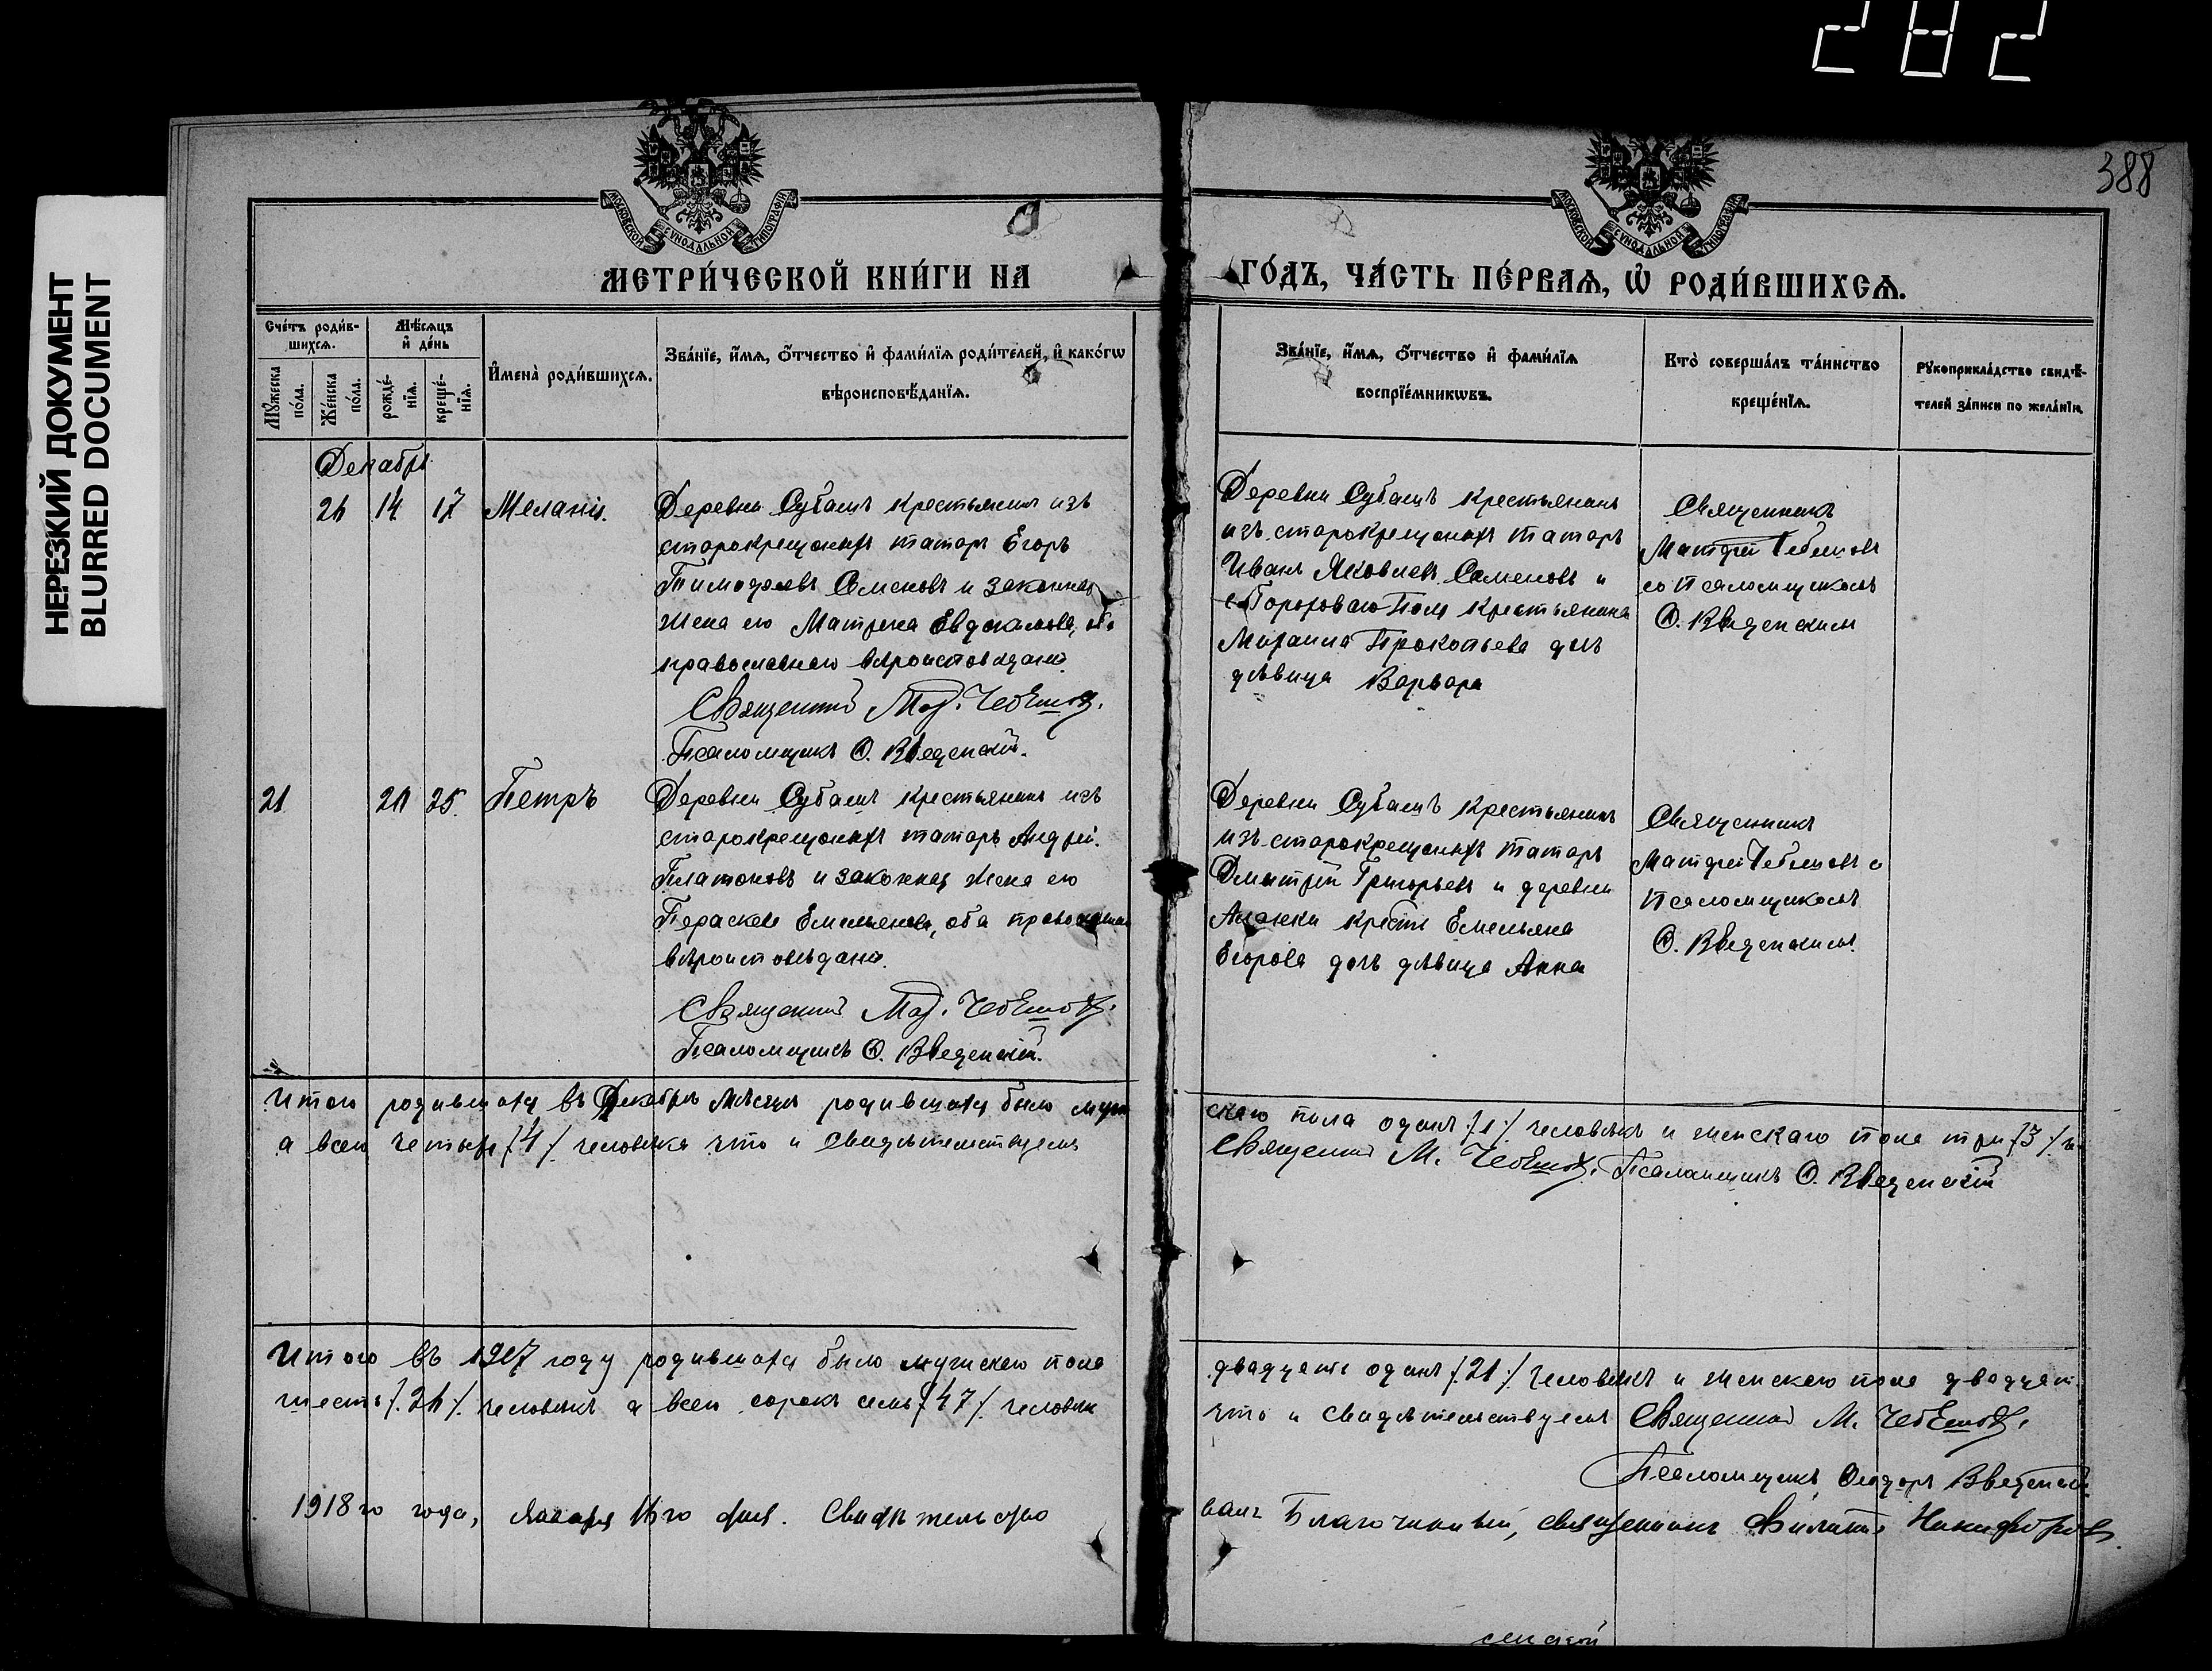 282
388
НЕРЕЗКИЙ ДОКУМЕНТ
BLURRED DOCUMENT
МОСКОВСКОЙ СѴНОДАЛЬНОЙ ТИПОГРАФІИ
МОСКОВСКОЙ СѴНОДАЛЬНОЙ ТИПОГРАФІИ
МЕТРИ́ЧЕСКОЙ КНИ́ГИ НА ГО́ДЪ, ЧА́СТЬ ПЕ́РВАѦ, Ѿ РОДИ́ВШИХСѦ.
Сче́тъ роди́в-
шихсѧ.
Мѣ́сѧцъ
и҆ де́нь
Мꙋ́жеска
по́ла.
Же́нска
по́ла.
рожде́-
нїѧ.
креще́-
нїѧ.
И҆мена̀ роди́вшихсѧ.
Зва́нїе, и҆́мѧ, ѻ҆́тчество и҆ фами́лїѧ роди́телей, и҆ како́гѡ
вѣроисповѣ́данїѧ.
Зва́нїе, и҆́мѧ, ѻ҆́тчество и҆ фами́лїѧ
воспрїе́мникѡвъ.
Кто̀ соверша́лъ та́инство
креще́нїѧ.
Рꙋкоприкла́дство свидѣ́-
телей за́писи по жела́нїю.
Декабрь
26 14 17 Меланія.
Деревни Субашъ крестьянинъ изъ
старокрещоныхъ татаръ Егоръ
Тимофеевъ Семеновъ и законная
жена его Матрена Евдокимова, оба
православнаго вѣроисповѣданія.
Священникъ Мат. Чебышовъ.
Псаломщикъ Ѳ. Введенскій.
Деревни Субашъ крестьянинъ
изъ старокрещоныхъ татаръ
Иванъ Яковлевъ Семеновъ и
крестьянина
Прокопьева дочь
дѣвица Варвара
Священникъ
Матфей Чебышовъ
со псаломщикомъ
Ѳ. Введенскимъ
21 25. Петръ
Деревни Субашъ крестьянинъ изъ
старокрещоныхъ татаръ Андрей.
Платоновъ и законная жена его
Параскева Емельянова, оба
вѣроисповѣданія.
Священникъ Мат. Чебышовъ.
Псаломщикъ Ѳ. Введенскій.
Деревни Субашъ крестьянинъ
изъ старокрещоныхъ татаръ
Дмитрій Григорьевъ и деревни
крест. Емельяна
Егорова дочь дѣвица Анна
Священникъ
Матфей Чебышовъ с
псаломщикомъ
Ѳ. Введенскимъ
Итого родившихся въ Декабрѣ мѣсяцѣ родившихся было муж
скаго пола одинъ /1/ человѣкъ и женскаго пола три /3/ ч.
а всего четыре /4/ человѣка что и свидѣтельствуемъ
Священникъ М. Чебышовъ. Псаломщикъ Ѳ. Введенскій
Итого въ 1917 году родившихся было мужскаго пола
двадцать одинъ /21/ человѣкъ и женскаго пола двадцать
шесть /26/ человѣкъ а всего сорокъ семь /47/ человѣкъ
что и свидѣтельствуемъ Священникъ М. Чебышовъ.
Псаломщикъ Ѳеодоръ Введенскій
1918 го года, Января 16го дня. Свидѣтельство
валъ Благочинный, священникъ Филиппъ Никифоровъ.